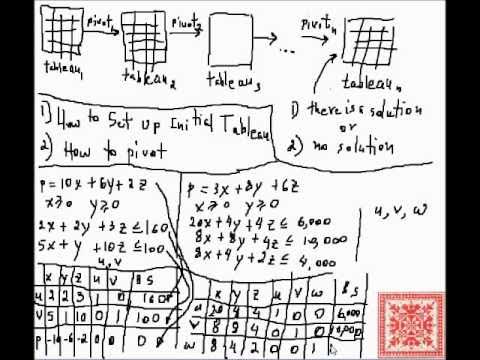 pivot₁ pivot₂ pivotₙ
tableau₁ tableau₂ tableau₃ ... tableauₙ
1) How to Set up Initial Tableau
2) How to pivot
1) there is a solution
or
2) no solution
p = 10x + 6y + 2z
x ≥ 0 y ≥ 0
2x + 2y + 3z ≤ 160
5x + y + 10z ≤ 100
u, v
p = 3x + 8y + 6z
x ≥ 0 y ≥ 0
20x + 4y + 4z ≤ 6,000
8x + 8y + 4z ≤ 10,000
8x + 4y + 2z ≤ 4,000
u, v, w
x y z u v BS
u 2 2 3 1 0 160
v 5 1 10 0 1 100
p -10 -6 -2 0 0 0
x y z u v w BS
u 20 4 4 1 0 0 6,000
v 8 8 4 0 1 0 10,000
w 8 4 2 0 0 1